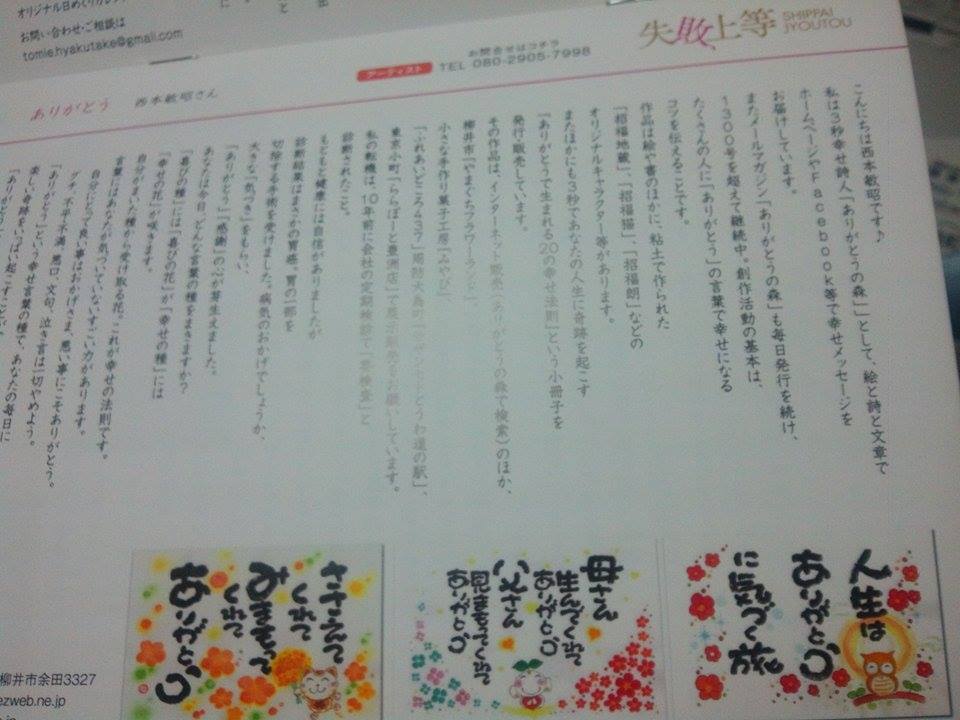 オリジナル日めくりカレンダー
お問い合わせ・ご相談は
tomie.hyakutake@gmail.com
失敗上等
SHIPPAI
JYOUTOU
お問合せはコチラ
アーティスト
TEL 080-2905-7998
ありがとう
西本敏昭さん
こんにちは西本敏昭です♪
私は3秒幸せ詩人「ありがとうの森」として、絵と詩と文章で
ホームページやFacebook等で幸せメッセージを
お届けしています。
またメールマガジン「ありがとうの森」も毎日発行を続け、
1300号を超えて継続中。創作活動の基本は、
たくさんの人に「ありがとう」の言葉で幸せになる
コツを伝えることです。
作品は絵や書のほかに、粘土で作られた
「招福地蔵」、「招福猫」、「招福朗」などの
オリジナルキャラクター等があります。
またほかにも3秒であなたの人生に奇跡を起こす
「ありがとうで生まれる20の幸せ法則」という小冊子を
発行・販売しています。
その作品は、インターネット販売(ありがとうの森で検索)のほか、
柳井市「やまぐちフラワーランド」、
小さな手作り菓子工房「みやび」、
「ふれあいどころ437」周防大島町「サザンセトとうわ道の駅」、
東京小町「ららぽーと豊洲店」で展示販売をお願いしています。
私の転機は、10年前に会社の定期検診で「要検査」と
診断されたこと。
もともと健康には自信がありましたが
診断結果はまさかの胃癌。胃の一部を
切除する手術を受けました。病気のおかげでしょうか、
大きな「気づき」をもらい、
「ありがとう」「感謝」の心が芽生えました。
あなたは今日、どんな言葉の種をまきますか?
「喜びの種」には「喜びの花」が「幸せの種」には
「幸せの花」が咲きます。
自分がまいた種から受け取る花。これが幸せの法則です。
言葉にはあなたが気づいていないすごい力があります。
自分にとって良い事はおかげさま、悪い事にこそありがとう。
グチ、不平不満、悪口、文句、泣き言は一切やめよう。
「ありがとう」という幸せ言葉の種で、あなたの毎日に
楽しい奇跡をいっぱい起こすことが
人生は
ありがとう
に気づく旅
母さん
生んでくれて
ありがとう
父さん
見守ってくれて
ありがとう
ささえて
くれて
みまもって
くれて
ありがとう
柳井市余田3327
ezweb.ne.jp